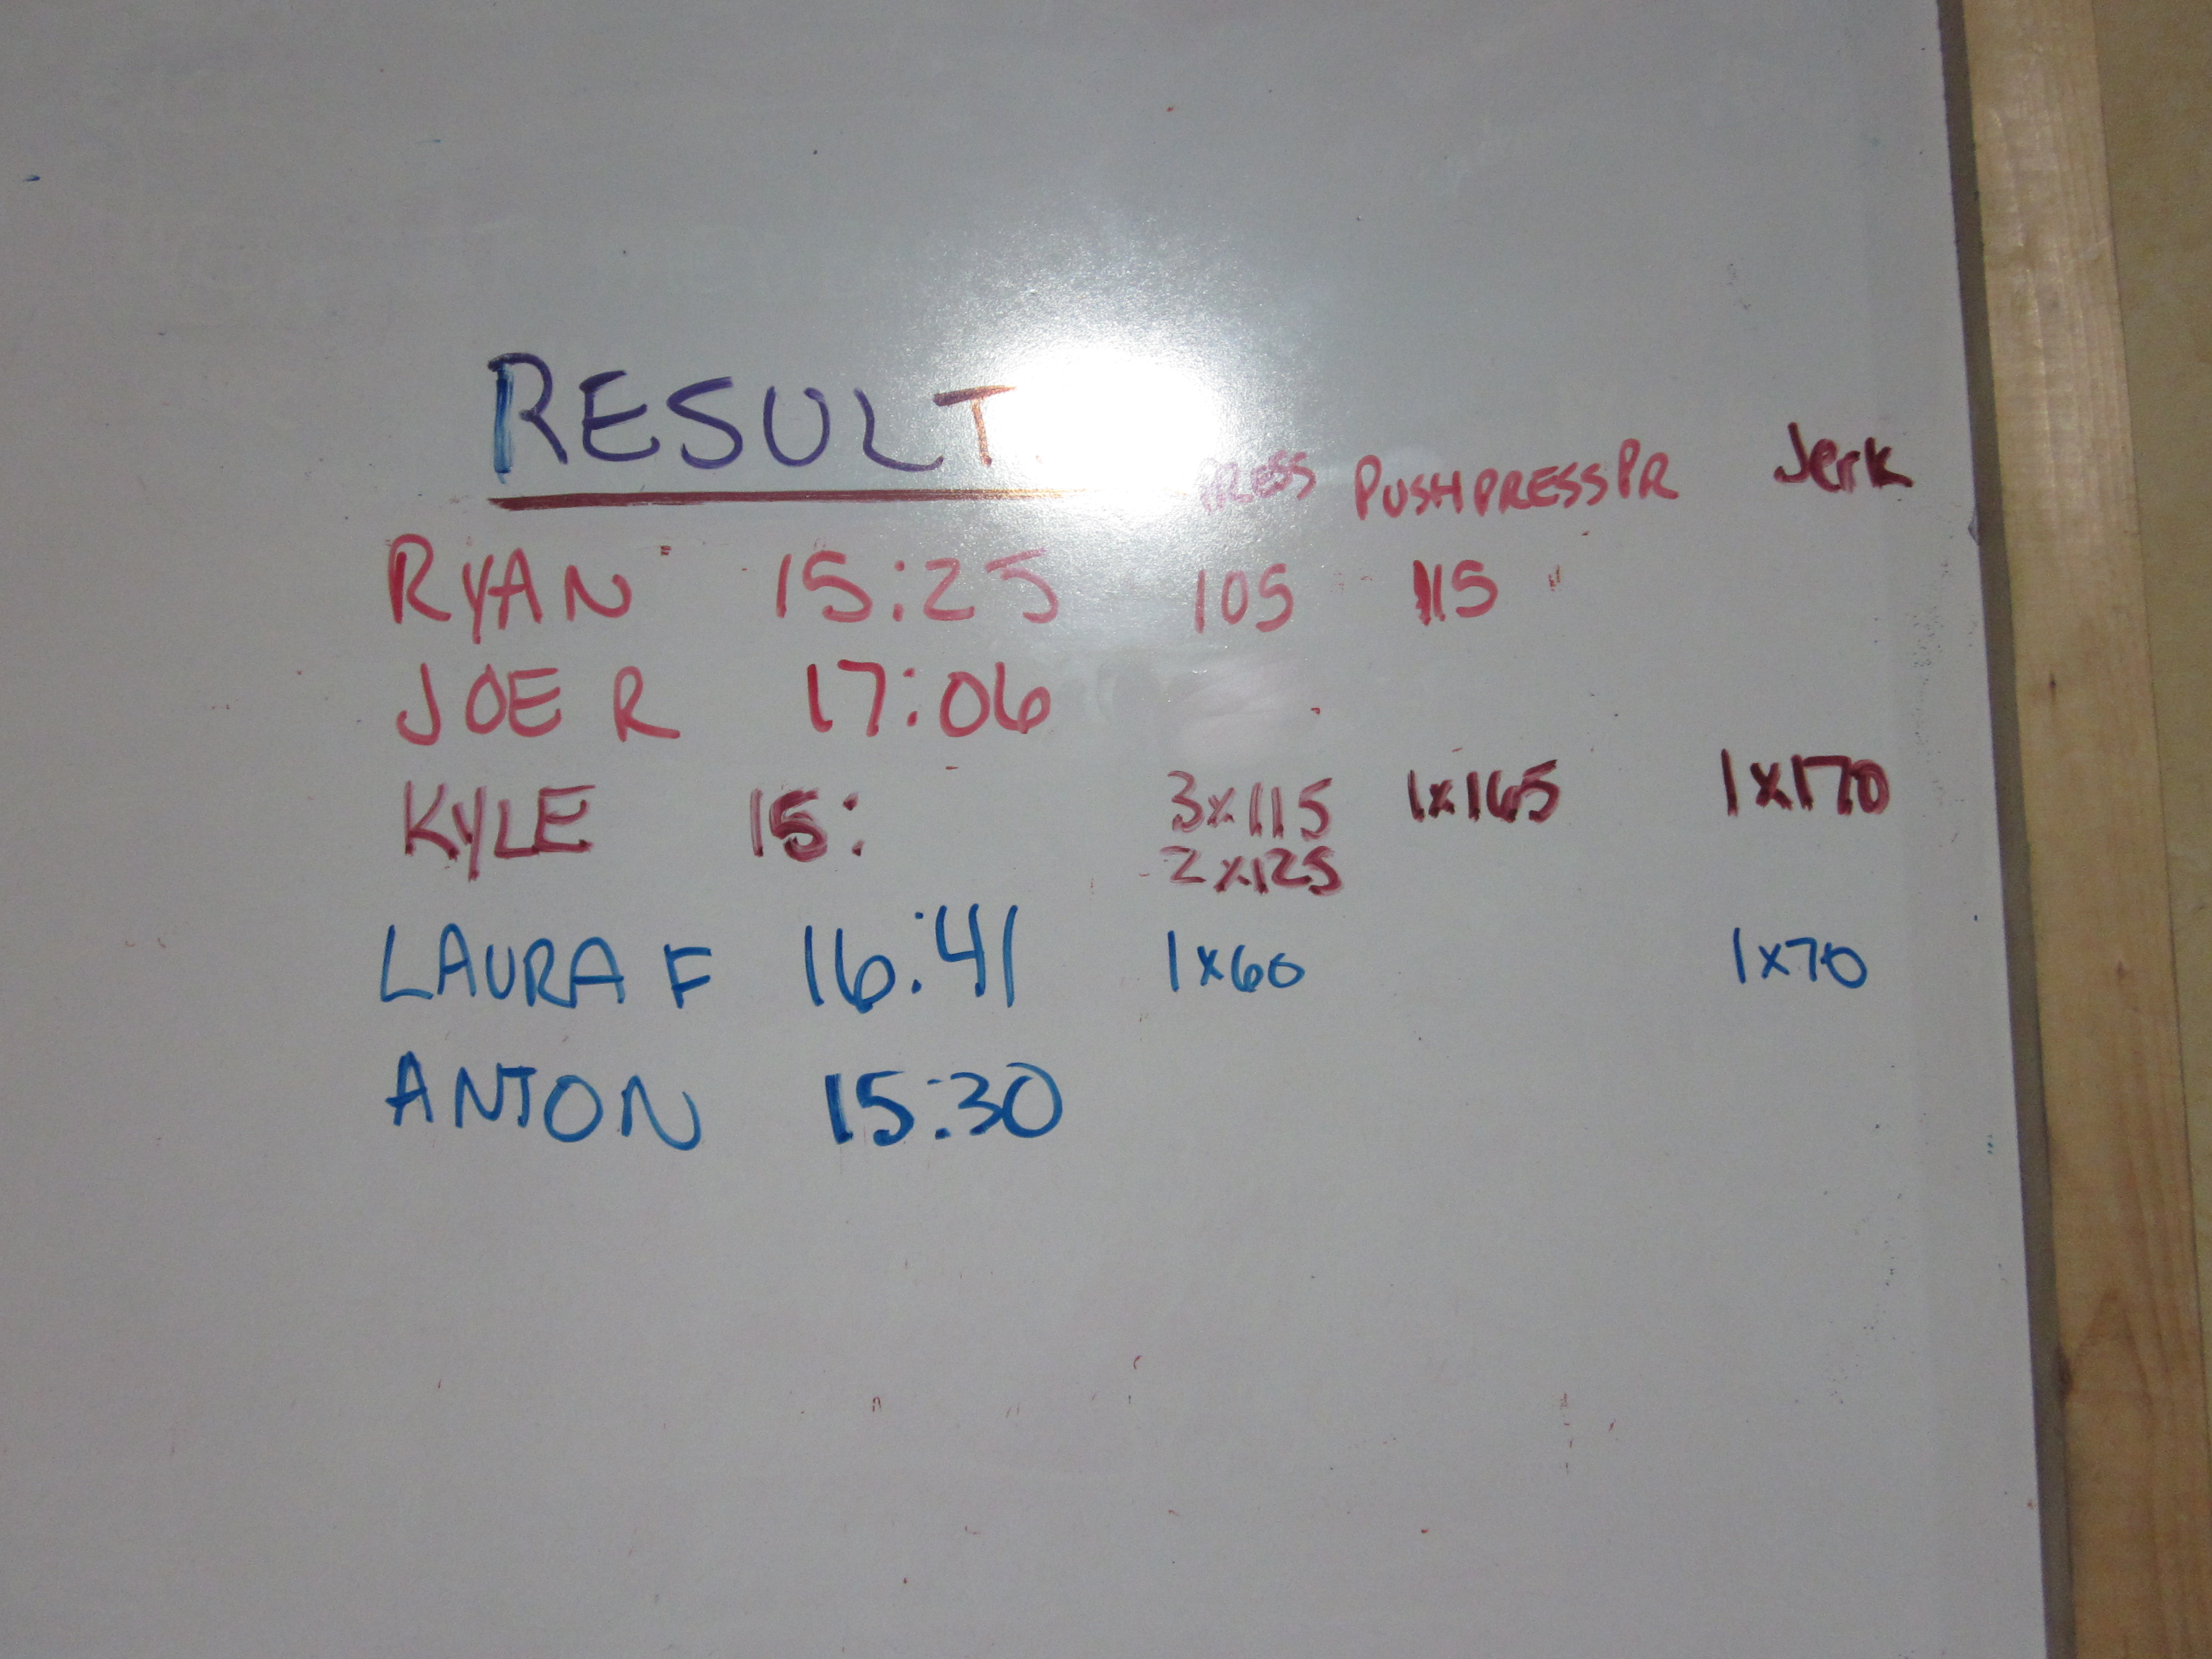 RESULT
PRESS PUSHPRESSPR Jerk
RYAN 15:25 105 115
JOE R 17:06
KYLE 15: 3x115 1x165 1x170
2x125
LAURA F 16:41 1x60 1x70
ANTON 15:30